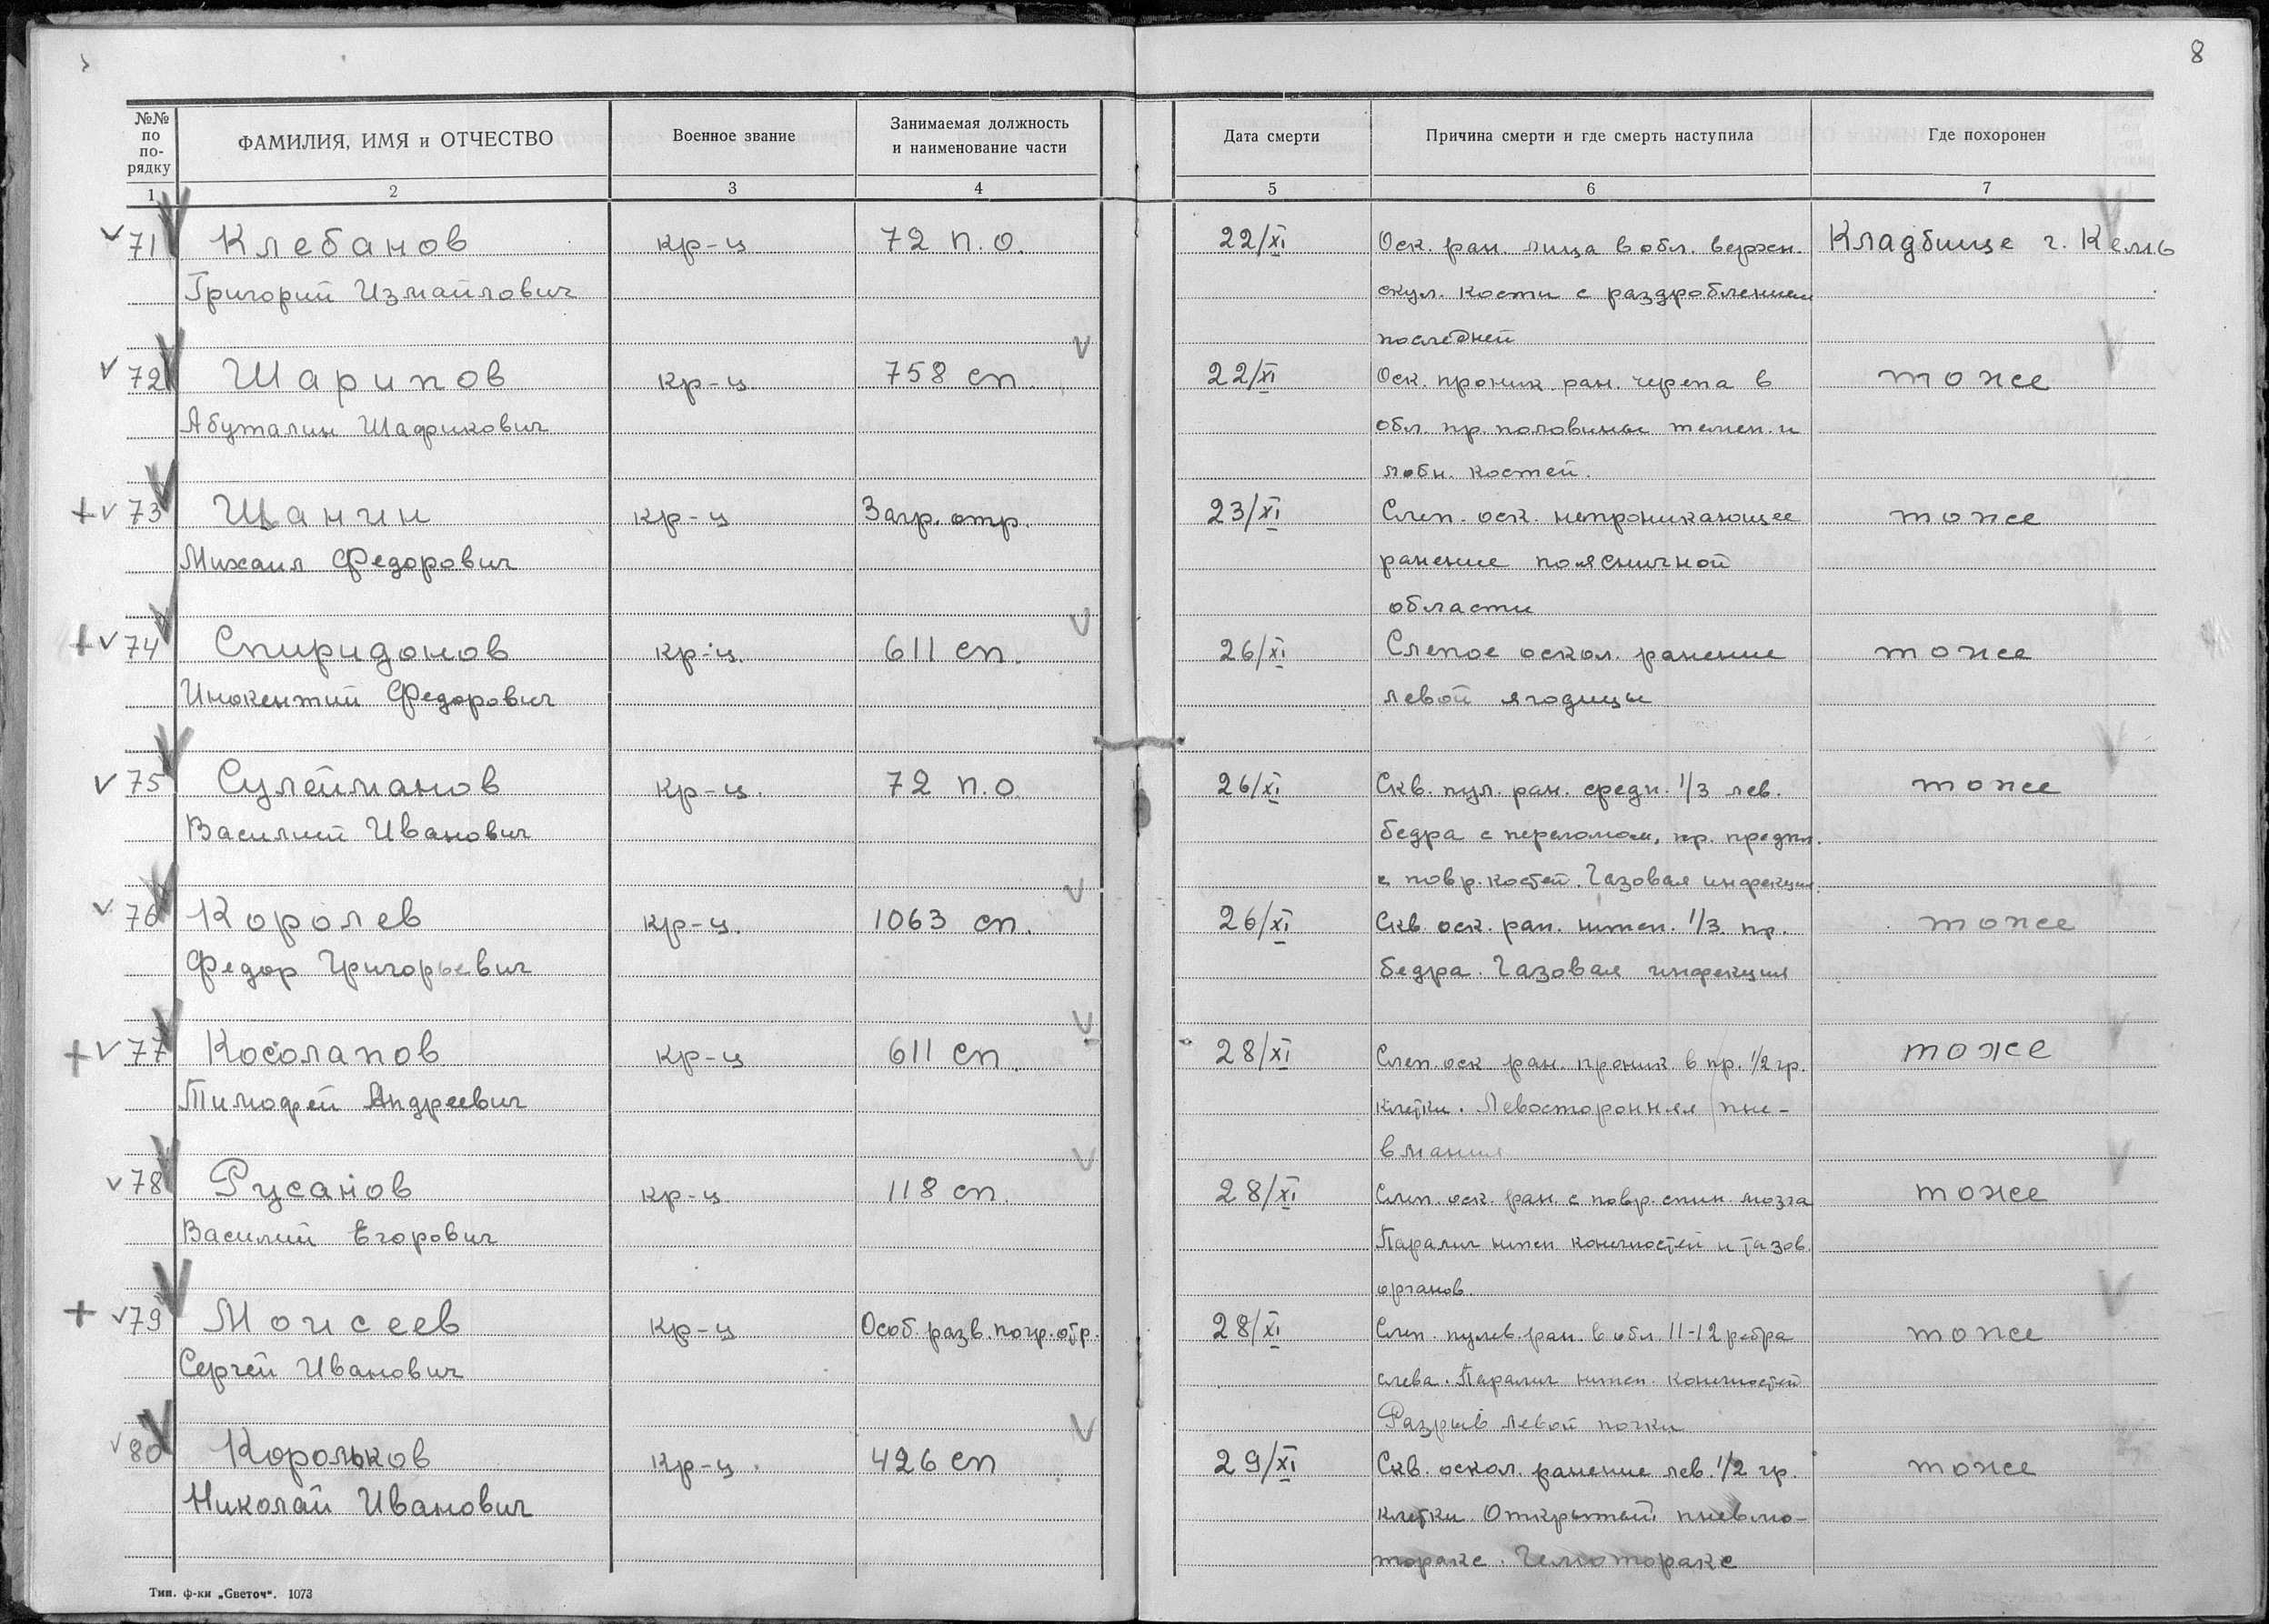 8
№№ по по-рядку
ФАМИЛИЯ, ИМЯ и ОТЧЕСТВО
Военное звание
Занимаемая должность и наименование части
Дата смерти
Причина смерти и где смерть наступила
Где похоронен
1 2 3 4 5 6 7
71 Клебанов кр-ц 72 п.о. 22/XI Оск. ран. лица в обл. верхн. Кладбище г. Кемь
Григорий Измайлович скул. кости с раздроблением
последней
72 Шарипов кр-ц 758 сп. 22/XI Оск. проник. ран. черепа в тоже
Абуталин Шафикович обл. пр. половины темен. и
лобн. костей.
+ 73 Щанин кр-ц Загр. отр. 23/XI Слеп. оск. непроникающее тоже
Михаил Федорович ранение поясничной
области
+ 74 Спиридонов кр-ц. 611 сп. 26/XI Слепое оскол. ранение тоже
Инокентий Федорович левой ягодицы
75 Сулейманов кр-ц. 72 п.о. 26/XI Скв. пул. ран. средн. 1/3 лев. тоже
Василий Иванович бедра с переломом, пр. предпл.
с повр. костей. Газовая инфекция.
76 Королев кр-ц. 1063 сп. 26/XI Скв. оск. ран. нижн. 1/3 пр. тоже
Федор Григорьевич бедра. Газовая инфекция
+ 77 Косолапов кр-ц 611 сп. 28/XI Слеп. оск. ран. проник. в пр. 1/2 гр. тоже
Тимофей Андреевич клетки. Левосторонняя пне-
вмания
78 Русанов кр-ц. 118 сп. 28/XI Слеп. оск. ран. с повр. спин. мозга тоже
Василий Егорович Паралич нижн. конечностей и тазов.
органов.
+ 79 Моисеев кр-ц Особ. разв. погр. отр. 28/XI Слеп. пулев. ран. в обл. 11-12 ребра тоже
Сергей Иванович слева. Паралич нижн. конечностей
Разрыв левой почки
80 Корольков кр-ц. 426 сп 29/XI Скв. оскол. ранение лев. 1/2 гр. тоже
Николай Иванович клетки. Открытый пневмо-
торакс. Гемоторакс
Тип. ф-ки „Светоч“. 1073